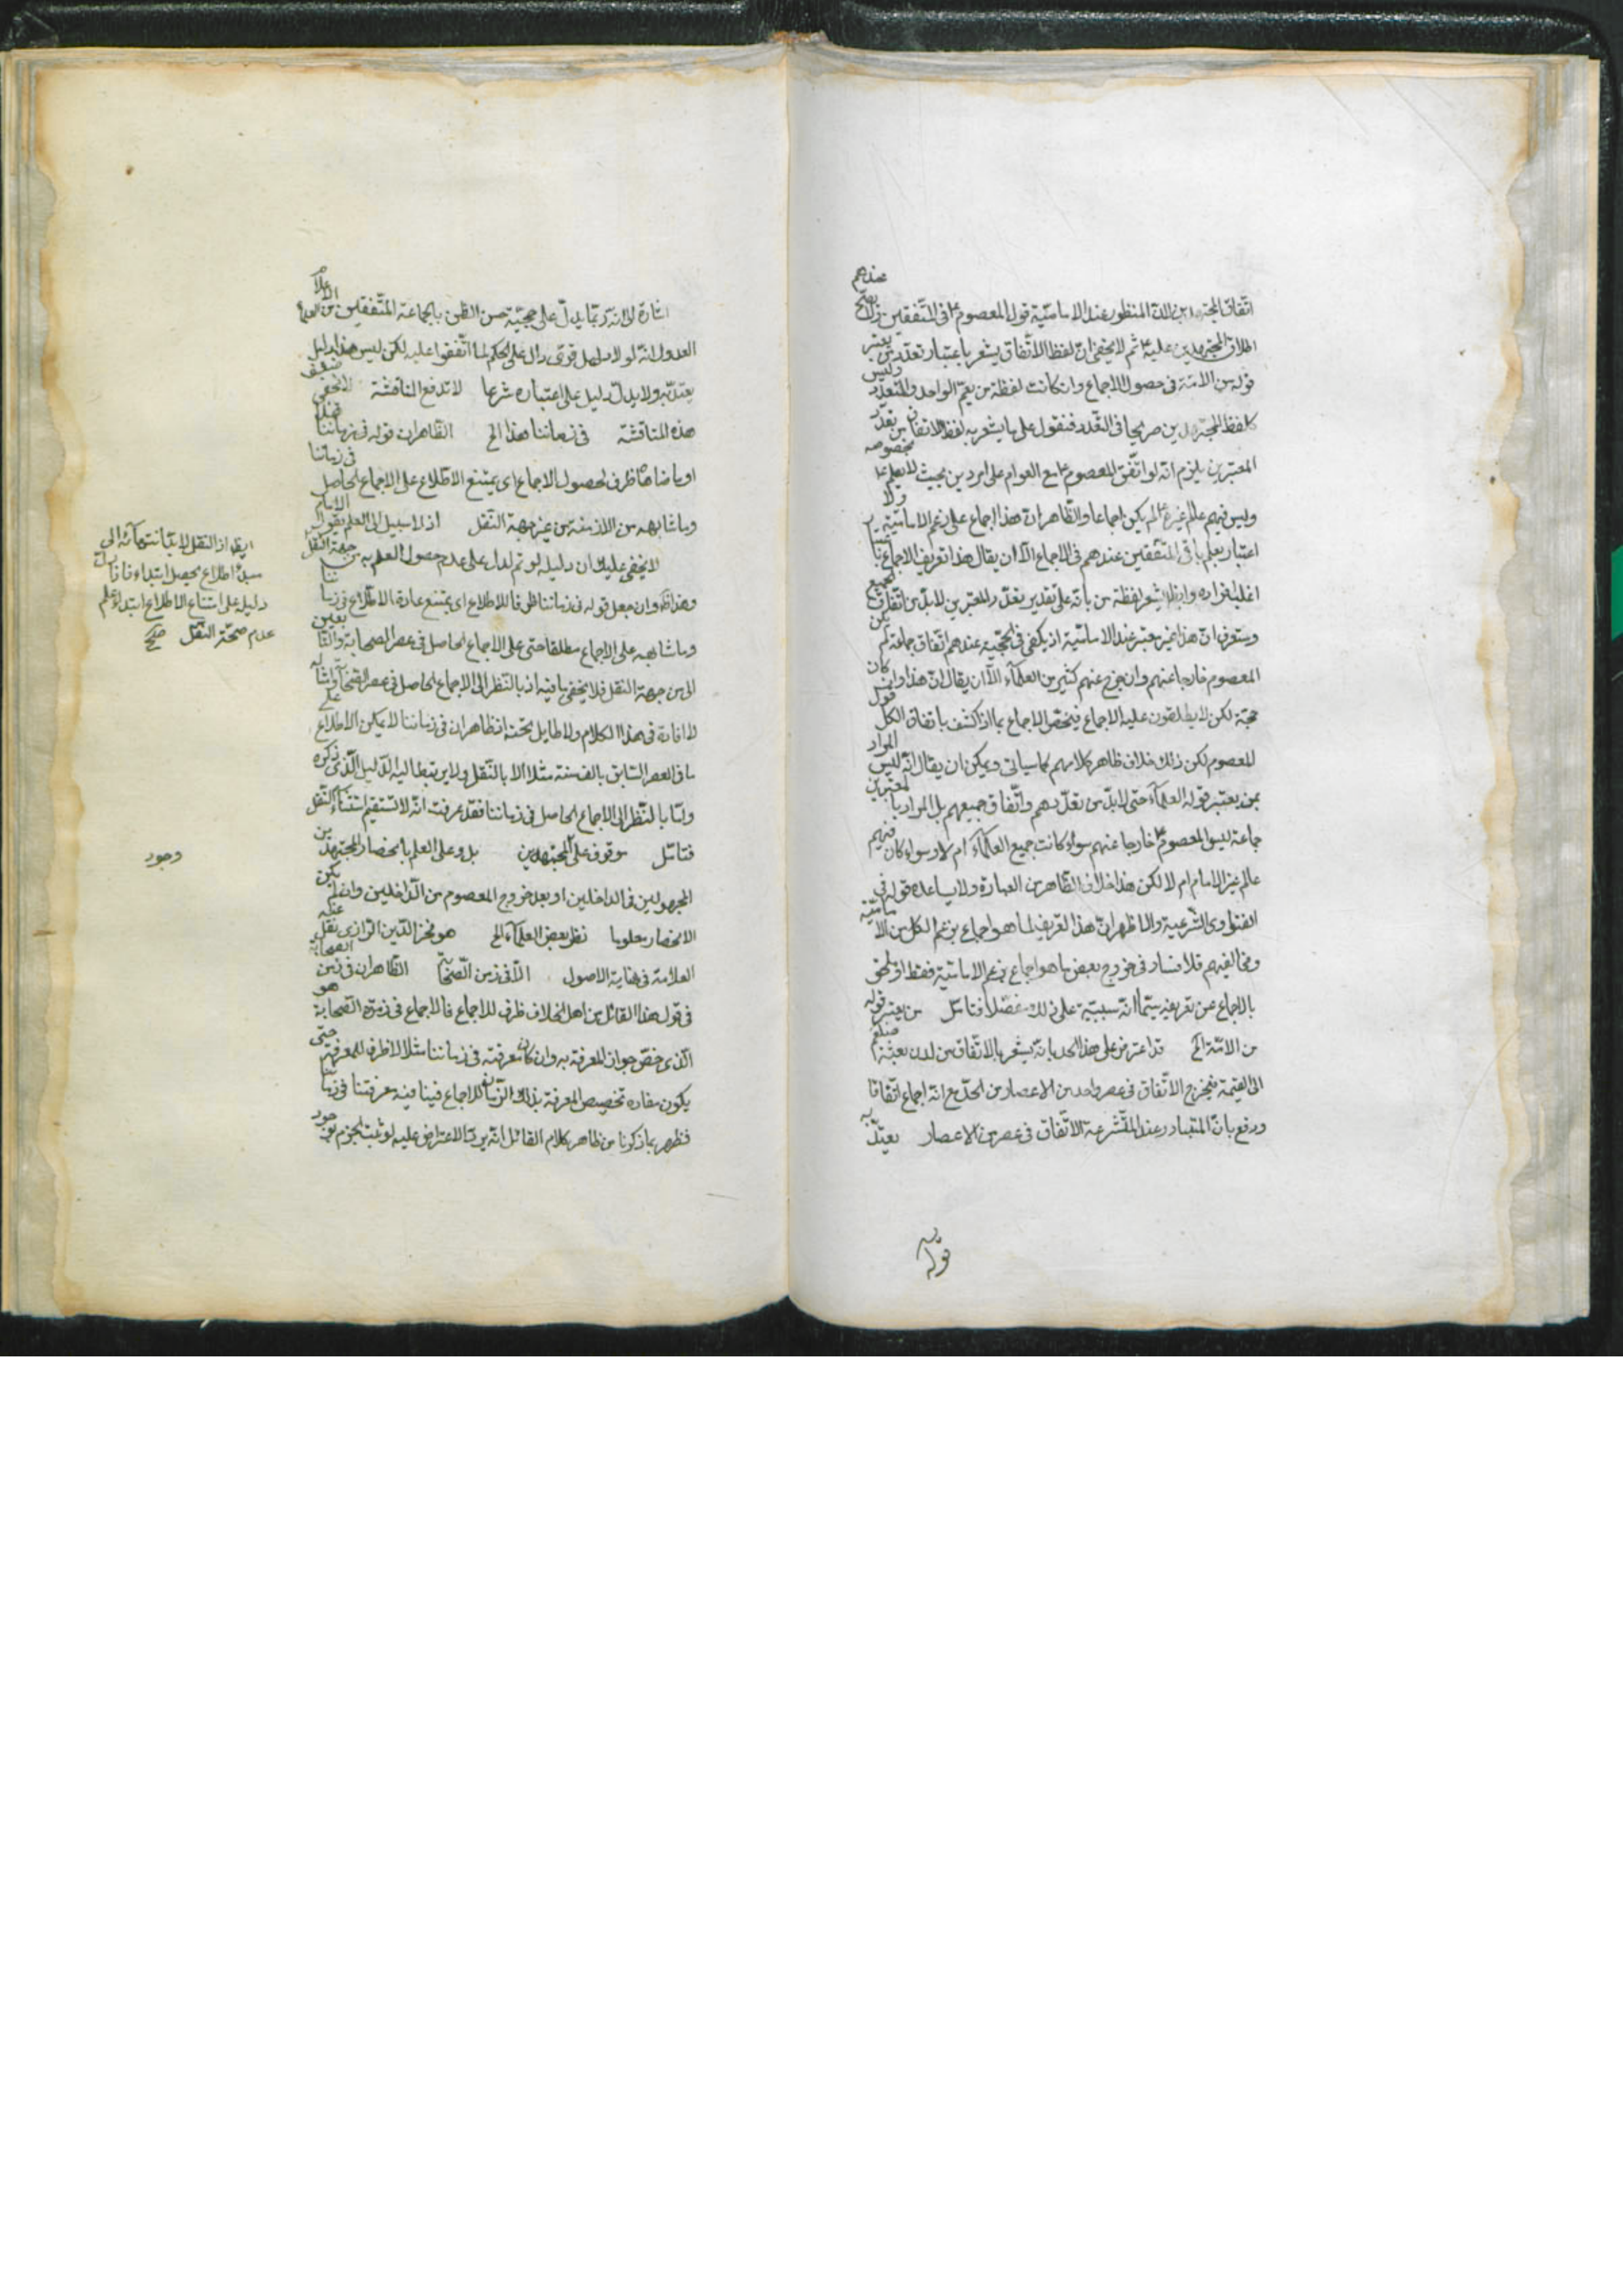 اتفاق المجتهدين لان المنظور عند الامامية قول المعصوم ع في المتفقين عندهم
اطلاق المجتهدين عليه ع ثم لا يخفى ان لفظ الاتفاق يشعر باعتبار تعدد من يعتبر
قوله من الامة في حصول الاجماع وان كانت لفظة من يعم الواحد والمتعدد وليس
كلفظ المجتهدين صريحا في التعدد فنقول على ما يشعر به لفظ الاتفاق من تعدد
المعتبرين يلزم انه لو اتفق المعصوم ع مع العوام على امر دين بحيث لا يعلم بخصوصه
وليس فيهم عالم غيره ع لم يكن اجماعا والظاهر ان هذا اجماع على زعم الامامية ولا
اعتبار بعلم باقي المتفقين عندهم في الاجماع الا ان يقال هذا تعريف الاجماع
اغلب افراده وايضا يشعر لفظة من بانه على تقدير تعدد المعتبرين لابد من اتفاق الجميع
وستعرف ان هذا غير معتبر عند الامامية اذ يكفي في الحجية عندهم اتفاق جماعة لم يكن
المعصوم خارجا عنهم وان خرج عنهم كثير من العلماء الا ان يقال ان هذا وان كان
حجة لكن لا يطلقون عليه الاجماع فيختص الاجماع بما اذا كشف باتفاق الكل قول
المعصوم لكن ذلك خلاف ظاهر كلامهم كما سياتي ويمكن ان يقال انه ليس المراد
بمن يعتبر قوله العلماء حتى لابد من تعددهم واتفاق جميعهم بل المراد بالمعتبرين
جماعة ليس المعصوم ع خارجا عنهم سواء كانت جميع العلماء ام لا وسواء كان فيهم
عالم غير الامام ام لا لكن هذا خلاف الظاهر من العبارة ولا يساعده قوله في
الفتاوى الشرعية والاظهر ان هذا التعريف لما هو اجماع بزعم الكل من الامامية
ومخالفيهم فلا فساد في خروج بعض ما هو اجماع بزعم الامامية فقط
بالاجماع عن تعريفه سيما انه سينبه على ذلك مفصلا فتامل من يعتبر قوله
من الامة الخ قد اعترض على هذا الحد بانه يشعر بالاتفاق من لدن بعثة
الى القيمة فيخرج الاتفاق في عصر واحد من الاعصار من الحد مع انه اجماع اتفاقا
ودفع بان المتبادر عند المتشرعة الاتفاق في عصر من الاعصار يعتد به
قوله
اشارة الى انه ربما يدل على حجية حسن الظن بالجماعة المتفقين من العلماء
العدول انه لولا دليل قوى دال على الحكم لما اتفقوا عليه لكن ليس هذا بدليل
يعتد به ولا يدل دليل على اعتباره شرعا لا تدفع المناقشة لا يخفى ضعف
هذه المناقشة في زماننا هذا الخ الظاهر ان قوله في زماننا
او ما ضاهاه ظرف لحصول الاجماع اى يمتنع الاطلاع على الاجماع الحاصل في زماننا
وما شابهه من الازمنة من غير جهة النقل اذ لا سبيل الى العلم بقول الامام
لا يخفى عليك ان دليله لو تم لدل على عدم حصول العلم به من جهة النقل
وان جعل قوله في زماننا ظرفا للاطلاع اى يمتنع عادة الاطلاع في زماننا
وما شابهه على الاجماع مطلقا حتى على الاجماع الحاصل في عصر الصحابة والتابعين
الا من جهة النقل فلا يخفى ما فيه اذ بالنظر الى الاجماع الحاصل في عصر الصحابة وامثاله
لا افادة في هذا الكلام ولا طايل تحته اذ ظاهر ان في زماننا لا يمكن الاطلاع على
ما في العصر السابق بالف سنة مثلا الا بالنقل ولا يرتبط اليه الدليل الذى ذكره
واما بالنظر الى الاجماع الحاصل في زماننا فقد عرفت انه لا تستقيم استثناء النقل
فتامل موقوف على المجتهدين بل وعلى العلم بانحصار المجتهدين
المجهولين في الداخلين او بعد خروج المعصوم من الداخلين وان لم يكن
الانحصار معلوما نظر بعض العلماء الخ هو فخر الدين الرازى نقل عنه
العلامة في نهاية الاصول الا في زمن الصحابة الظاهر ان في زمن الصحابة
في قول هذا القائل من اهل الخلاف ظرف للاجماع فالاجماع في زمرة الصحابة هو
الذى خص جواز المعرفة به وان كان معرفته في زماننا مثلا لا ظرف للمعرفة حتى
يكون مفاده تخصيص المعرفة بذلك الزمان للاجماع فينافيه معرفتنا في زماننا
فظهر بما ذكرنا من ظاهر كلام القائل انه يرد الاعتراض عليه لو ثبت الجزم بوجود
ايضا اذ النقل لابد انتهائه الى
مبدء اطلاع يحصل ابتداء فاذا دل
دليل على امتناع الاطلاع ابتداء علم
عدم صحة النقل صح
وجود